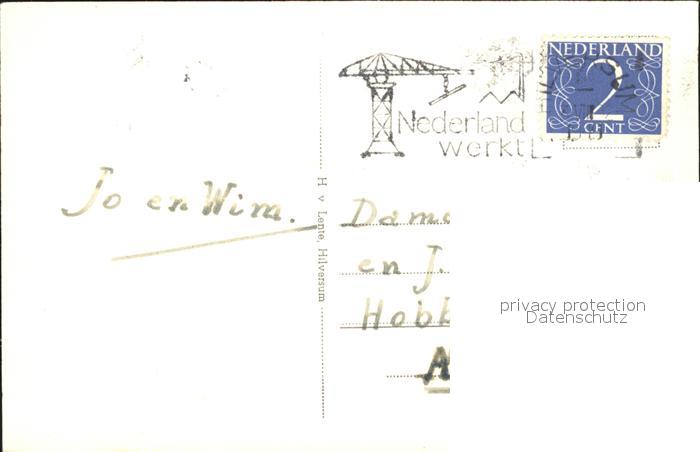 NEDERLAND
2
CENT
Nederland
werkt
Jo en Wim.
H. v. Lente, Hilversum
Dam
en J.
Hobb
A
privacy protection
Datenschutz